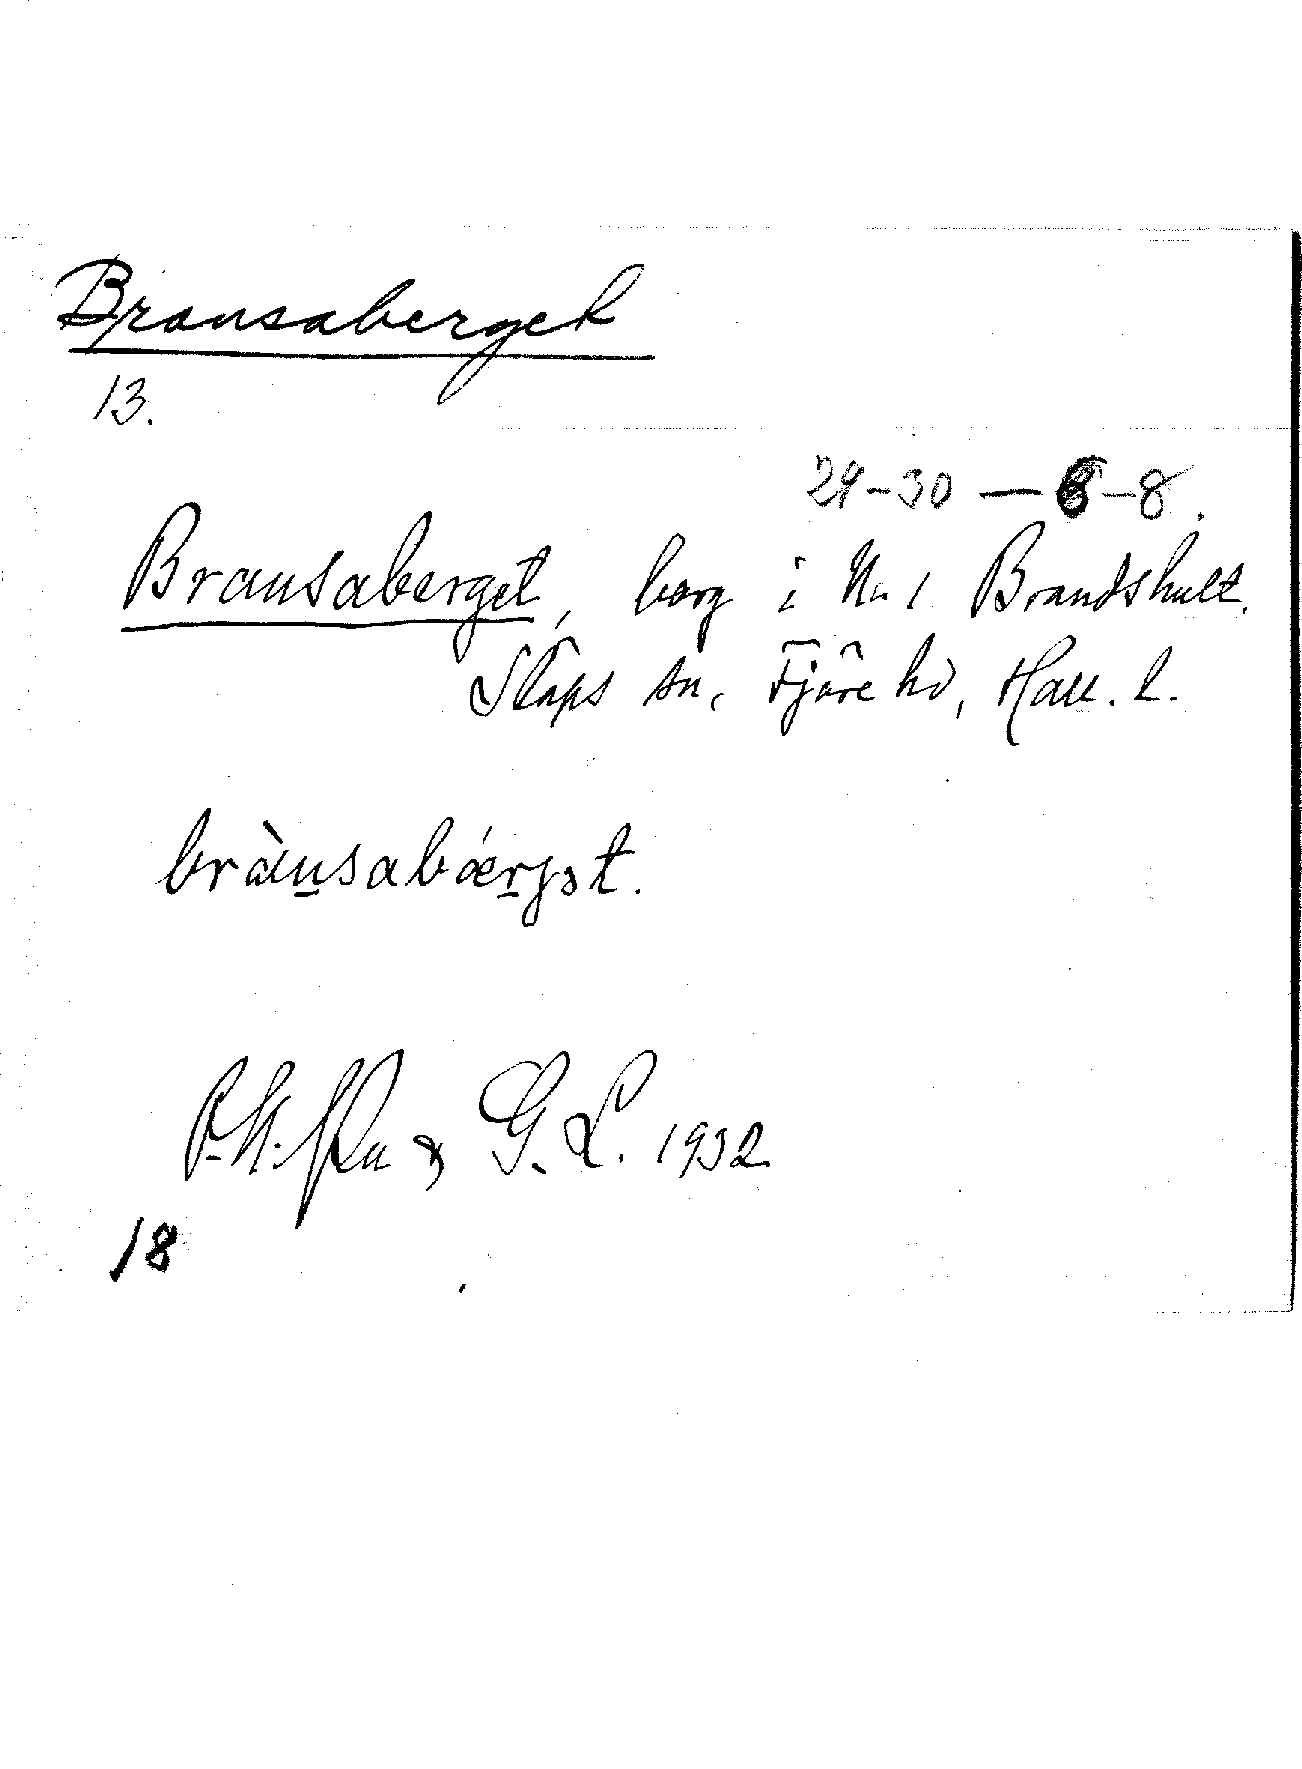 Bransaberget
13.
29-30 — 6-8.
Bransaberget, berg i N:o 1 Brandshult.
Släps sn, Fjäre hd, Hall. l.
brànsabǽrjət.
G. L. 1932
18